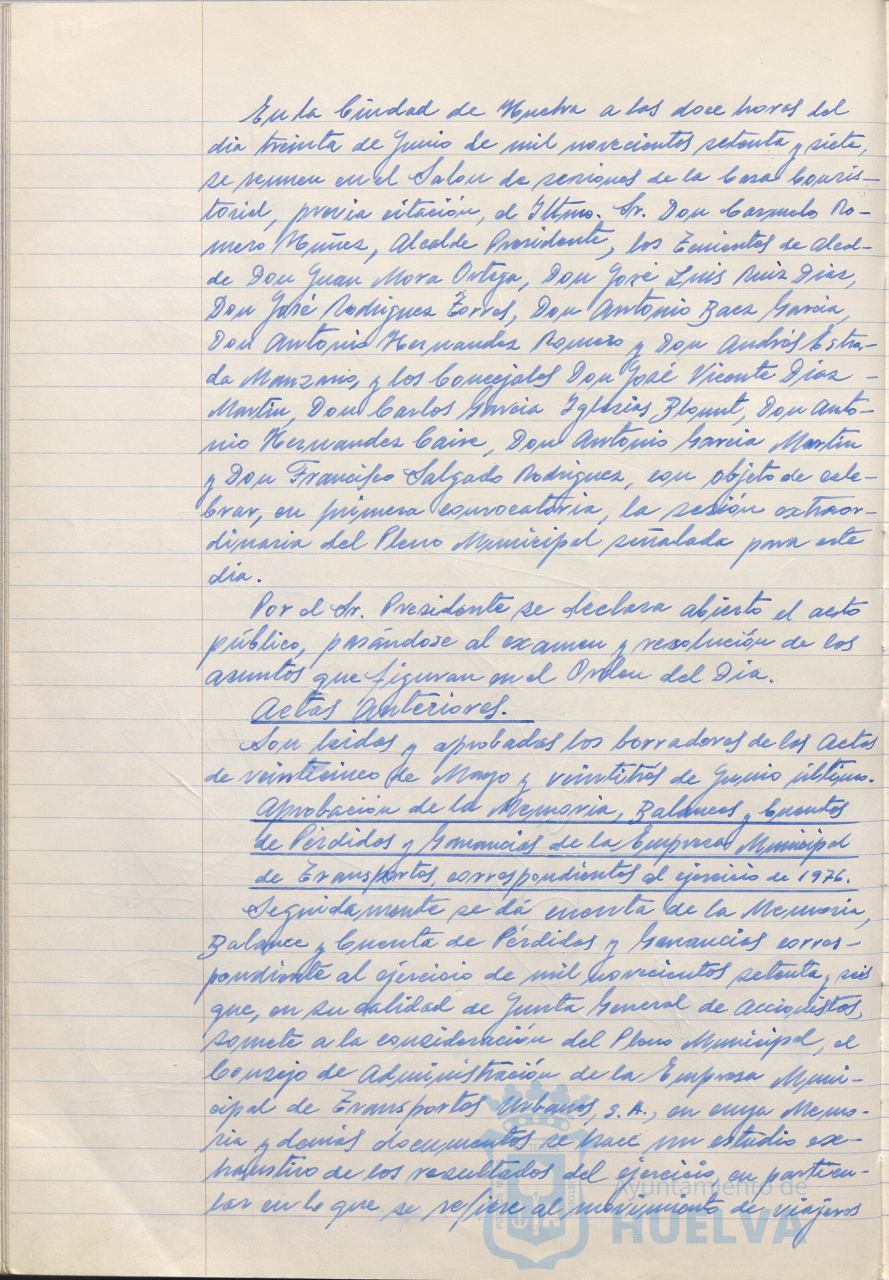 En la Ciudad de Huelva a las doce horas del
dia treinta de Junio de mil novecientos setenta y siete,
se reunen en el Salon de sesiones de la Casa Consis-
torial, previa citación, el Iltmo. Sr. Don Carmelo Ro-
mero Núñez, Alcalde Presidente, los Tenientes de Alcal-
de Don Juan Mora Ortega, Don José Luis Ruiz Diaz,
Don José Rodriguez Torres, Don Antonio Baez Garcia,
Don Antonio Hernandez Romero y Don Andrés Estra-
da Manzano, y los Concejales Don José Vicente Diaz
Martin, Don Carlos Garcia Iglesias Blount, Don Anto-
nio Hernandez Caire, Don Antonio Garcia Martin
y Don Francisco Salgado Rodriguez, con objeto de cele-
brar, en primera convocatoria, la sesión extraor-
dinaria del Pleno Municipal señalada para este
dia.
Por el Sr. Presidente se declara abierto el acto
público, pasándose al examen y resolución de los
asuntos que figuran en el Orden del Dia.
Actas anteriores.
Son leidas y aprobadas los borradores de las Actas
de veinticinco de Mayo y veintitrés de Junio último.
Aprobación de la Memoria, Balances y Cuentas
de Pérdidas y Ganancias de la Empresa Municipal
de Transportes, correspondientes al ejercicio de 1976.
Seguidamente se dá cuenta de la Memoria,
Balance y Cuenta de Pérdidas y Ganancias corres-
pondiente al ejercicio de mil novecientos setenta y seis
que, en su calidad de Junta General de Accionistas,
somete a la consideración del Pleno Municipal, el
Consejo de Administración de la Empresa Muni-
cipal de Transportes Urbanos, S.A., en cuya Memo-
ria y demás documentos se hace un estudio ex-
haustivo de los resultados del ejercicio, en particu-
lar en lo que se refiere al movimiento de viajeros
Ayuntamiento de
HUELVA